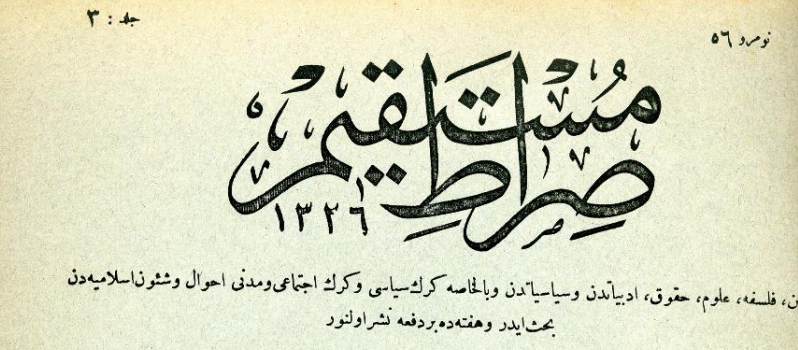 نومرو ٥٦
جلد : ٣
صراط مستقيم
١٣٢٦
ن، فلسفه، علوم، حقوق، ادبياتدن وسياسياتدن وبالخاصه كرك سياسى وكرك اجتماعى ومدنى احوال وشئون اسلاميه دن
بحث ايدر وهفته ده بر دفعه نشر اولنور